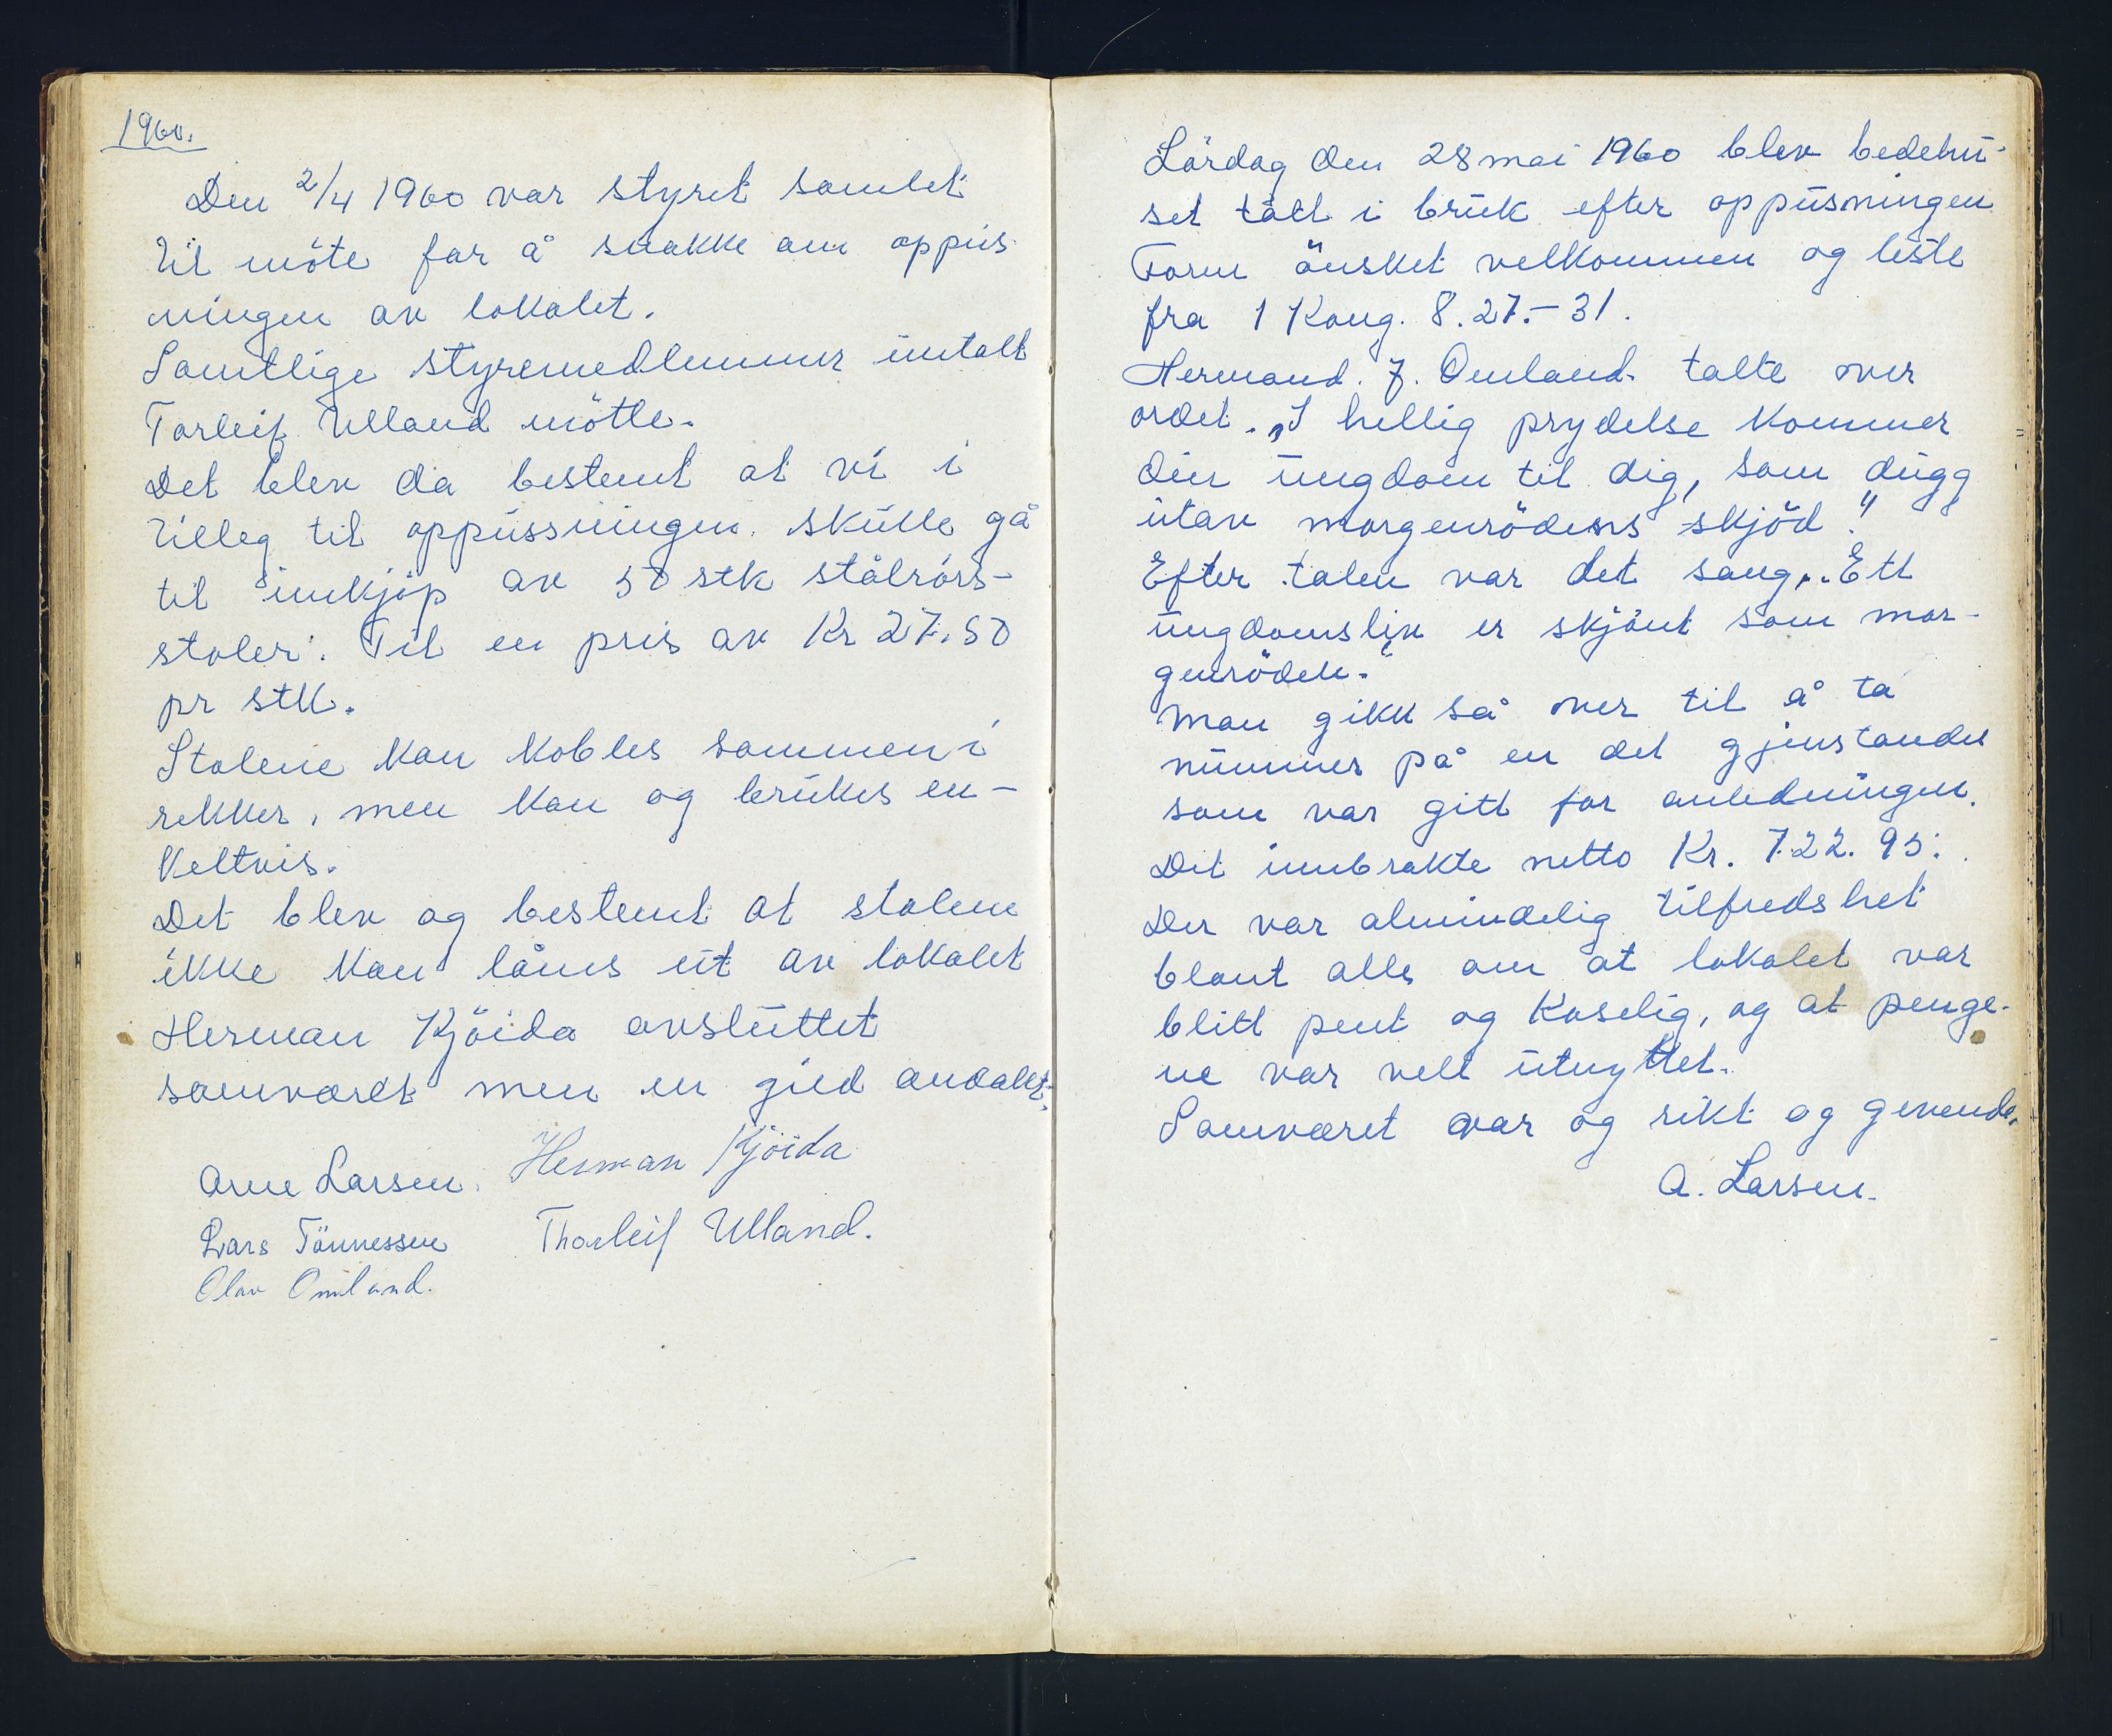 1960.
Den 2/4 1960 var styret samlet
til möte for å snakke om oppus
ningen av lokalet.
Samtlige styremedlemmer untatt
Torleif Ulland mötte.
Det blev da bestemt at vi i
tilleg til oppussningen. skulle gå
til innkjöp av 50 stk stålrörs-
stoler. Til en pris av Kr 27.50
pr stk.
Stolene kan kobles sammen i
rekker, men kan og brukes en-
keltvis.
Det blev og bestemt at stolene
ikke kan lånes ut av lokalet
Herman Kjöida avsluttet
samværet men en gild andakt.
Arne Larsen. Herman Kjöida
Lars Tönnessen Thorleif Ulland.
Olav Omland.
Lördag den 28 mai 1960 blev bedehu-
set tatt i bruk efter oppusningen
Form önsket velkommen og leste
fra 1 Kong. 8.27.-31.
Hermand. J. Omland. talte over
ordet. „I hellig prydelse kommer
din ungdom til dig, som dugg
utav morgenrödens skjöd."
Efter talen var det sang. „Ett
ungdomsliv er skjönt som mor-
genröden."
Man gikk så over til å ta
nummer på en del gjenstander
som var gitt for anledningen.
Det innbrakte netto Kr. 722.95.
Der var almindelig tilfredshet
blant alle om at lokalet var
blitt pent og koselig, og at penge-
ne var vell utnyttet.
Samværet var og rikt og givende.
A. Larsen.